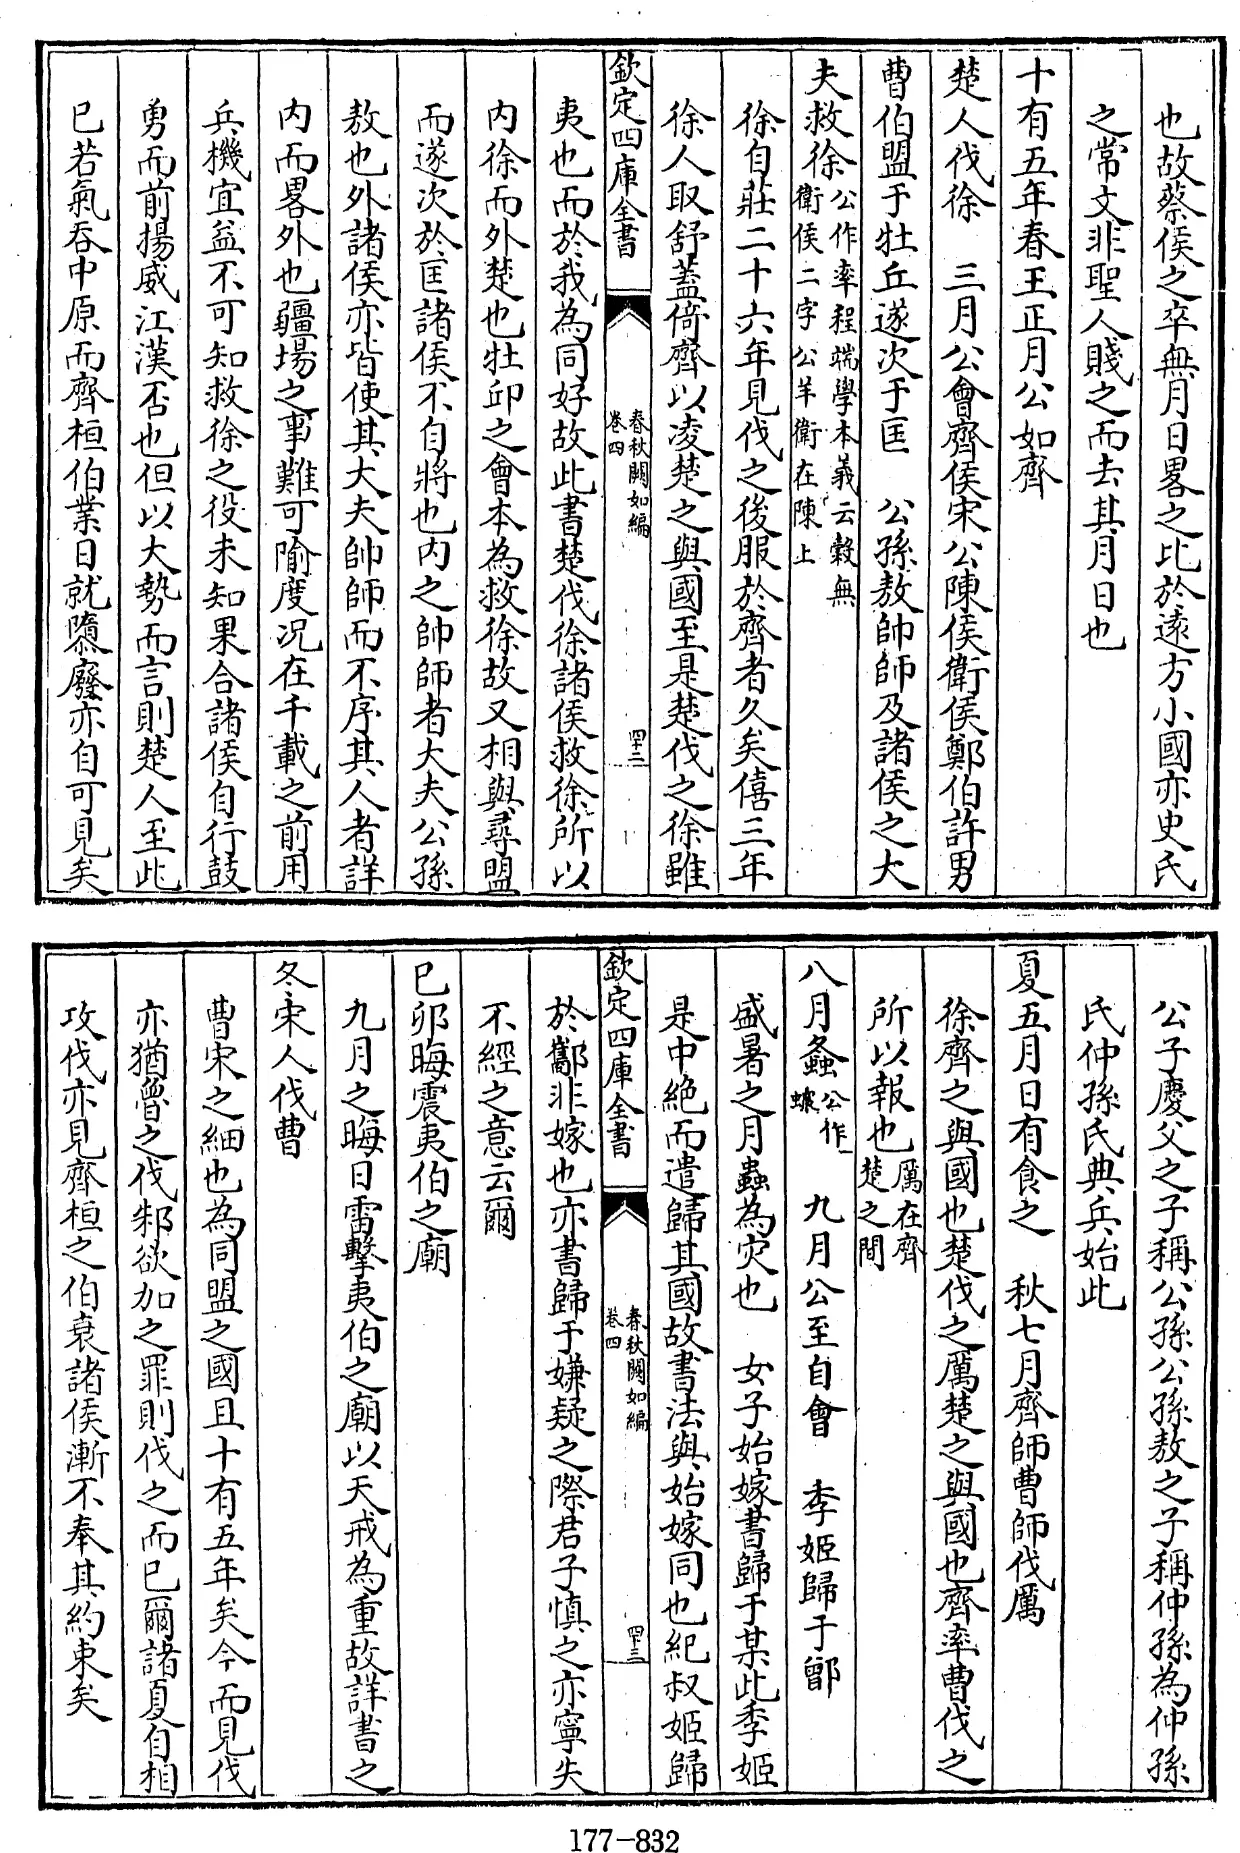 也故蔡侯之卒無月日畧之比於遠方小國亦史氏
之常文非聖人賤之而去其月日也
十有五年春王正月公如齊
楚人伐徐　三月公會齊侯宋公陳侯衛侯鄭伯許男
曹伯盟于牡丘遂次于匡　公孫敖帥師及諸侯之大
夫救徐公作率程端學本義云穀無
衛侯二字公羊衛在陳上
徐自莊二十六年見伐之後服於齊者久矣僖三年
徐人取舒蓋倚齊以凌楚之與國至是楚伐之徐雖
欽定四庫全書
春秋闕如編
卷四
四十二
夷也而於我為同好故此書楚伐徐諸侯救徐所以
内徐而外楚也牡邱之會本為救徐故又相與尋盟
而遂次於匡諸侯不自將也内之帥師者大夫公孫
敖也外諸侯亦皆使其大夫帥師而不序其人者詳
内而畧外也疆場之事難可隃度况在千載之前用
兵機宜益不可知救徐之役未知果合諸侯自行鼓
勇而前揚威江漢否也但以大勢而言則楚人至此
已若氣吞中原而齊桓伯業日就隳廢亦自可見矣
公子慶父之子稱公孫公孫敖之子稱仲孫為仲孫
氏仲孫氏典兵始此
夏五月日有食之　秋七月齊師曹師伐厲
徐齊之與國也楚伐之厲楚之與國也齊率曹伐之
所以報也厲在齊
楚之間
八月螽公作
蠓　九月公至自會　季姬歸于鄫
盛暑之月蟲為灾也　女子始嫁書歸于某此季姬
是中絶而遣歸其國故書法與始嫁同也紀叔姬歸
欽定四庫全書
春秋闕如編
卷四
四十三
於酅非嫁也亦書歸于嫌疑之際君子慎之亦寧失
不經之意云爾
已卯晦震夷伯之廟
九月之晦日雷擊夷伯之廟以天戒為重故詳書之
冬宋人伐曹
曹宋之細也為同盟之國且十有五年矣今而見伐
亦猶魯之伐邾欲加之罪則伐之而已爾諸夏自相
攻伐亦見齊桓之伯衰諸侯漸不奉其約束矣
177-832